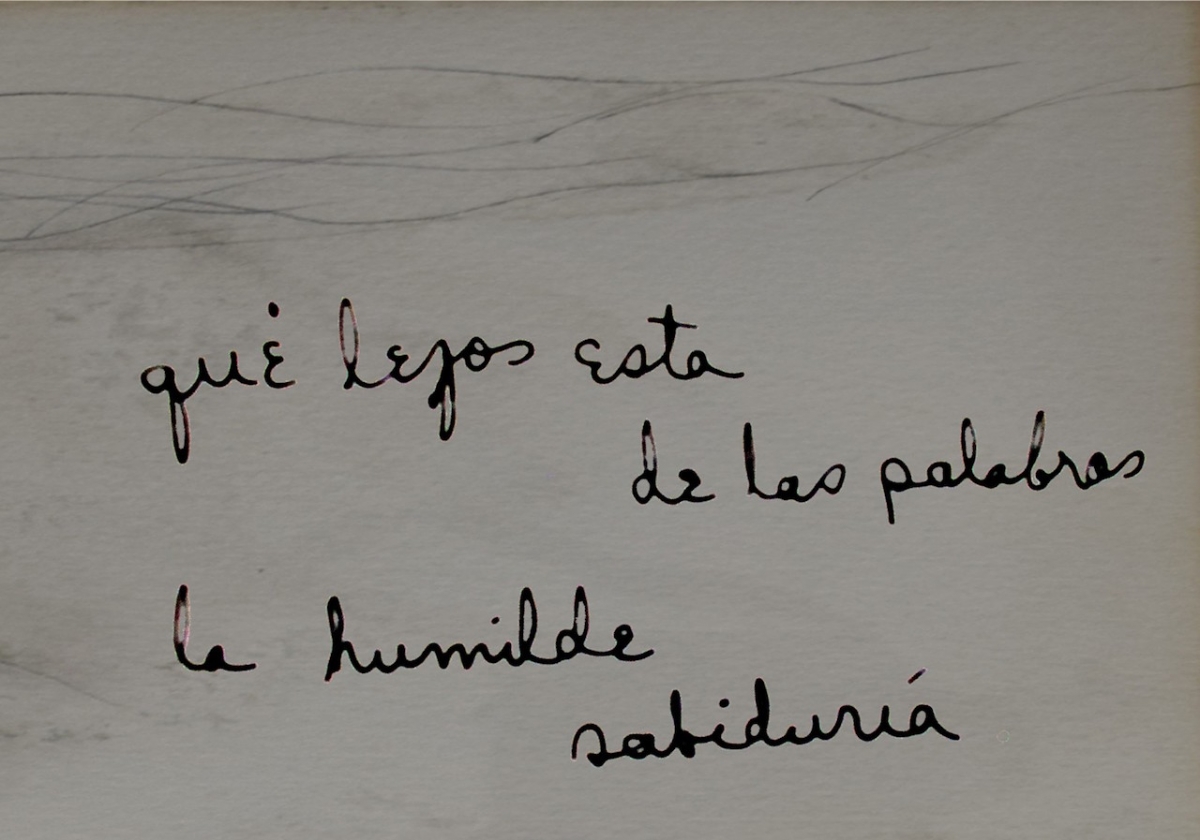 qué lejos esta
de las palabras
la humilde
sabiduría